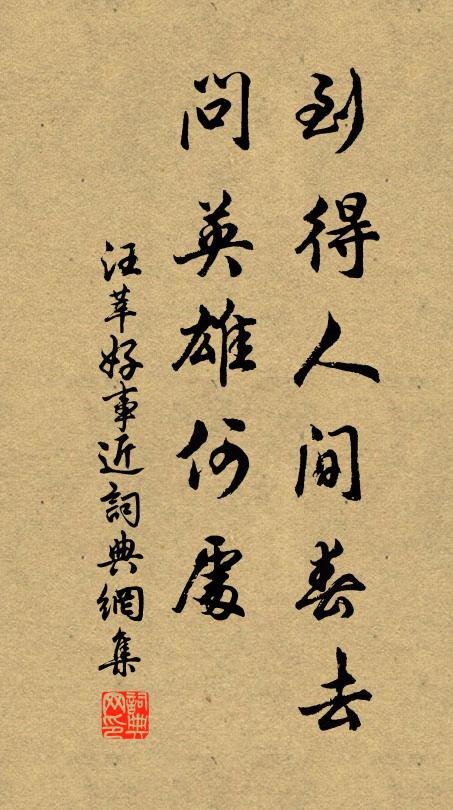 到得人间春去
问英雄何處
汪莘好事近詞典網集
詞典网印